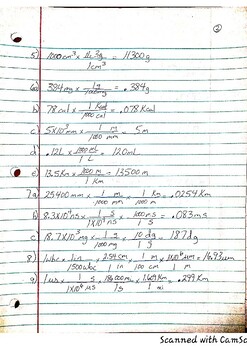 ②
5) 1000cm³ × 11.3g / 1cm³ = 11300g
6a) 384mg × 1g / 1000mg = .384g
b) 78 cal × 1 Kcal / 1000 cal = .078 Kcal
c) 5×10³ mm × 1 m / 1000 mm = 5m
d) .12L × 1000 ml / 1 L = 120ml
e) 13.5Km × 1000 m / 1 Km = 13500m
7a) 25400 mm × 1 m / 1000 mm × 1 Km / 1000 m = .0254 Km
b) 8.3×10⁴ ns × 1 s / 1×10⁹ ns × 1000 ms / 1 s = .083ms
c) 18.7×10³ mg × 1 g / 1000 mg × 10 dg / 1 g = 187dg
8) 1 wbc × 1 in / 1500 wbc × 2.54 cm / 1 in × 1 m / 100 cm × 1×10⁶ μm / 1 m = 16.93 μm
9) 1 μs × 1 s / 1×10⁶ μs × 186000 mi / 1 s × 1.609 Km / 1 mi = .299 Km
Scanned with CamSc